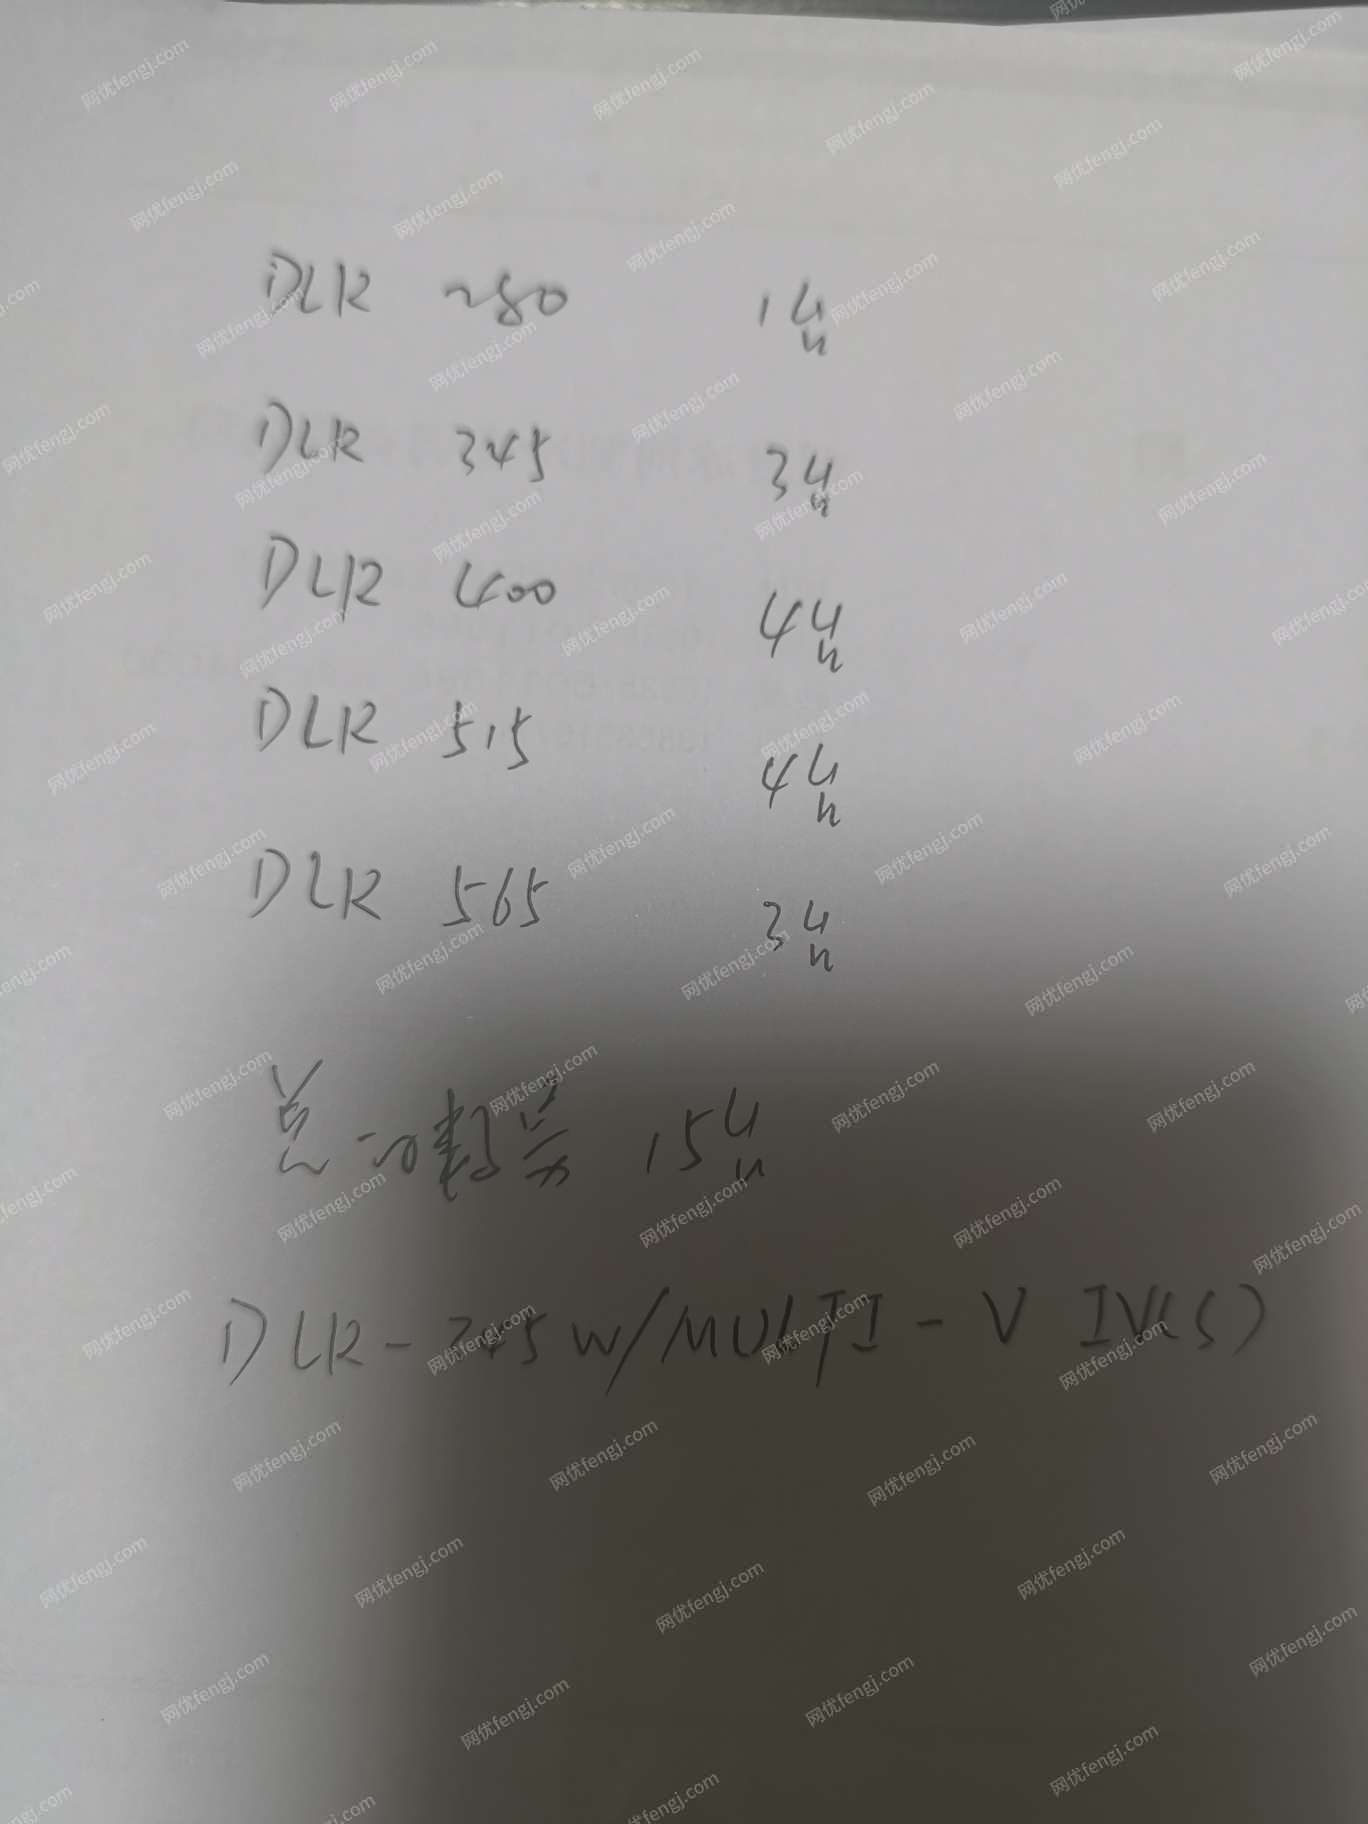 DLR 280 1台
DLR 345 3台
DLR 400 4台
DLR 515 4台
DLR 565 3台
总 数 15台
DLR-345 W/MULTI-V IV(S)
网优fengj.com